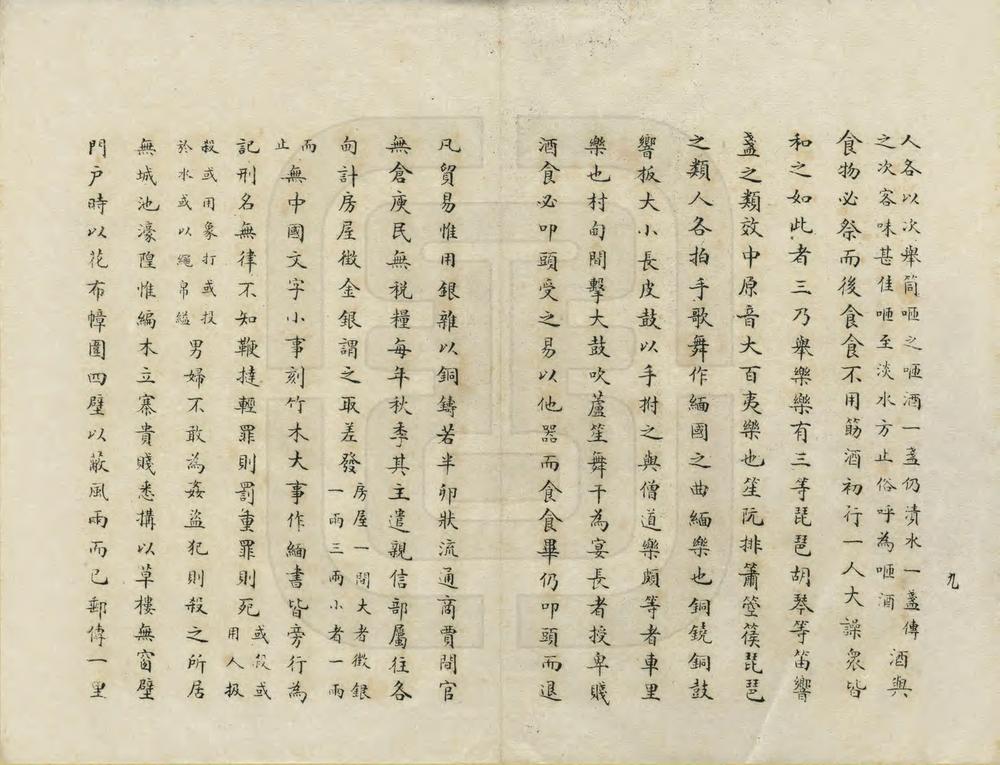 九
人各以次舉筒咂之咂酒一盞仍漬水一盞傳
之次客味甚佳咂至淡水方止俗呼為咂酒
酒與
食物必祭而後食食不用筯酒初行一人大譟衆皆
和之如此者三乃舉樂樂有三等琵琶胡琴等笛響
盞之類效中原音大百夷樂也笙阮排簫箜篌琵琶
之類人各拍手歌舞作緬國之曲緬樂也銅鐃銅鼓
響板大小長皮鼓以手拊之與僧道樂頗等者車里
樂也村甸間擊大鼓吹蘆笙舞干為宴長者授卑賤
酒食必叩頭受之易以他器而食食畢仍叩頭而退
凡貿易惟用銀雜以銅鑄若半卵狀流通商賈間官
無倉庾民無税糧每年秋季其主遣親信部屬往各
甸計房屋徵金銀謂之取差發
房屋一間大者徵銀
一兩三兩小者一兩
而
止
無中國文字小事刻竹木大事作緬書皆旁行為
記刑名無律不知鞭撻輕罪則罰重罪則死
或殺或
用人扱
殺或用象打或投
於水或以繩帛縊
男婦不敢為姦盜犯則殺之所居
無城池濠隍惟編木立寨貴賤悉搆以草樓無窗壁
門戶時以花布幛圍四壁以蔽風雨而已郵傳一里